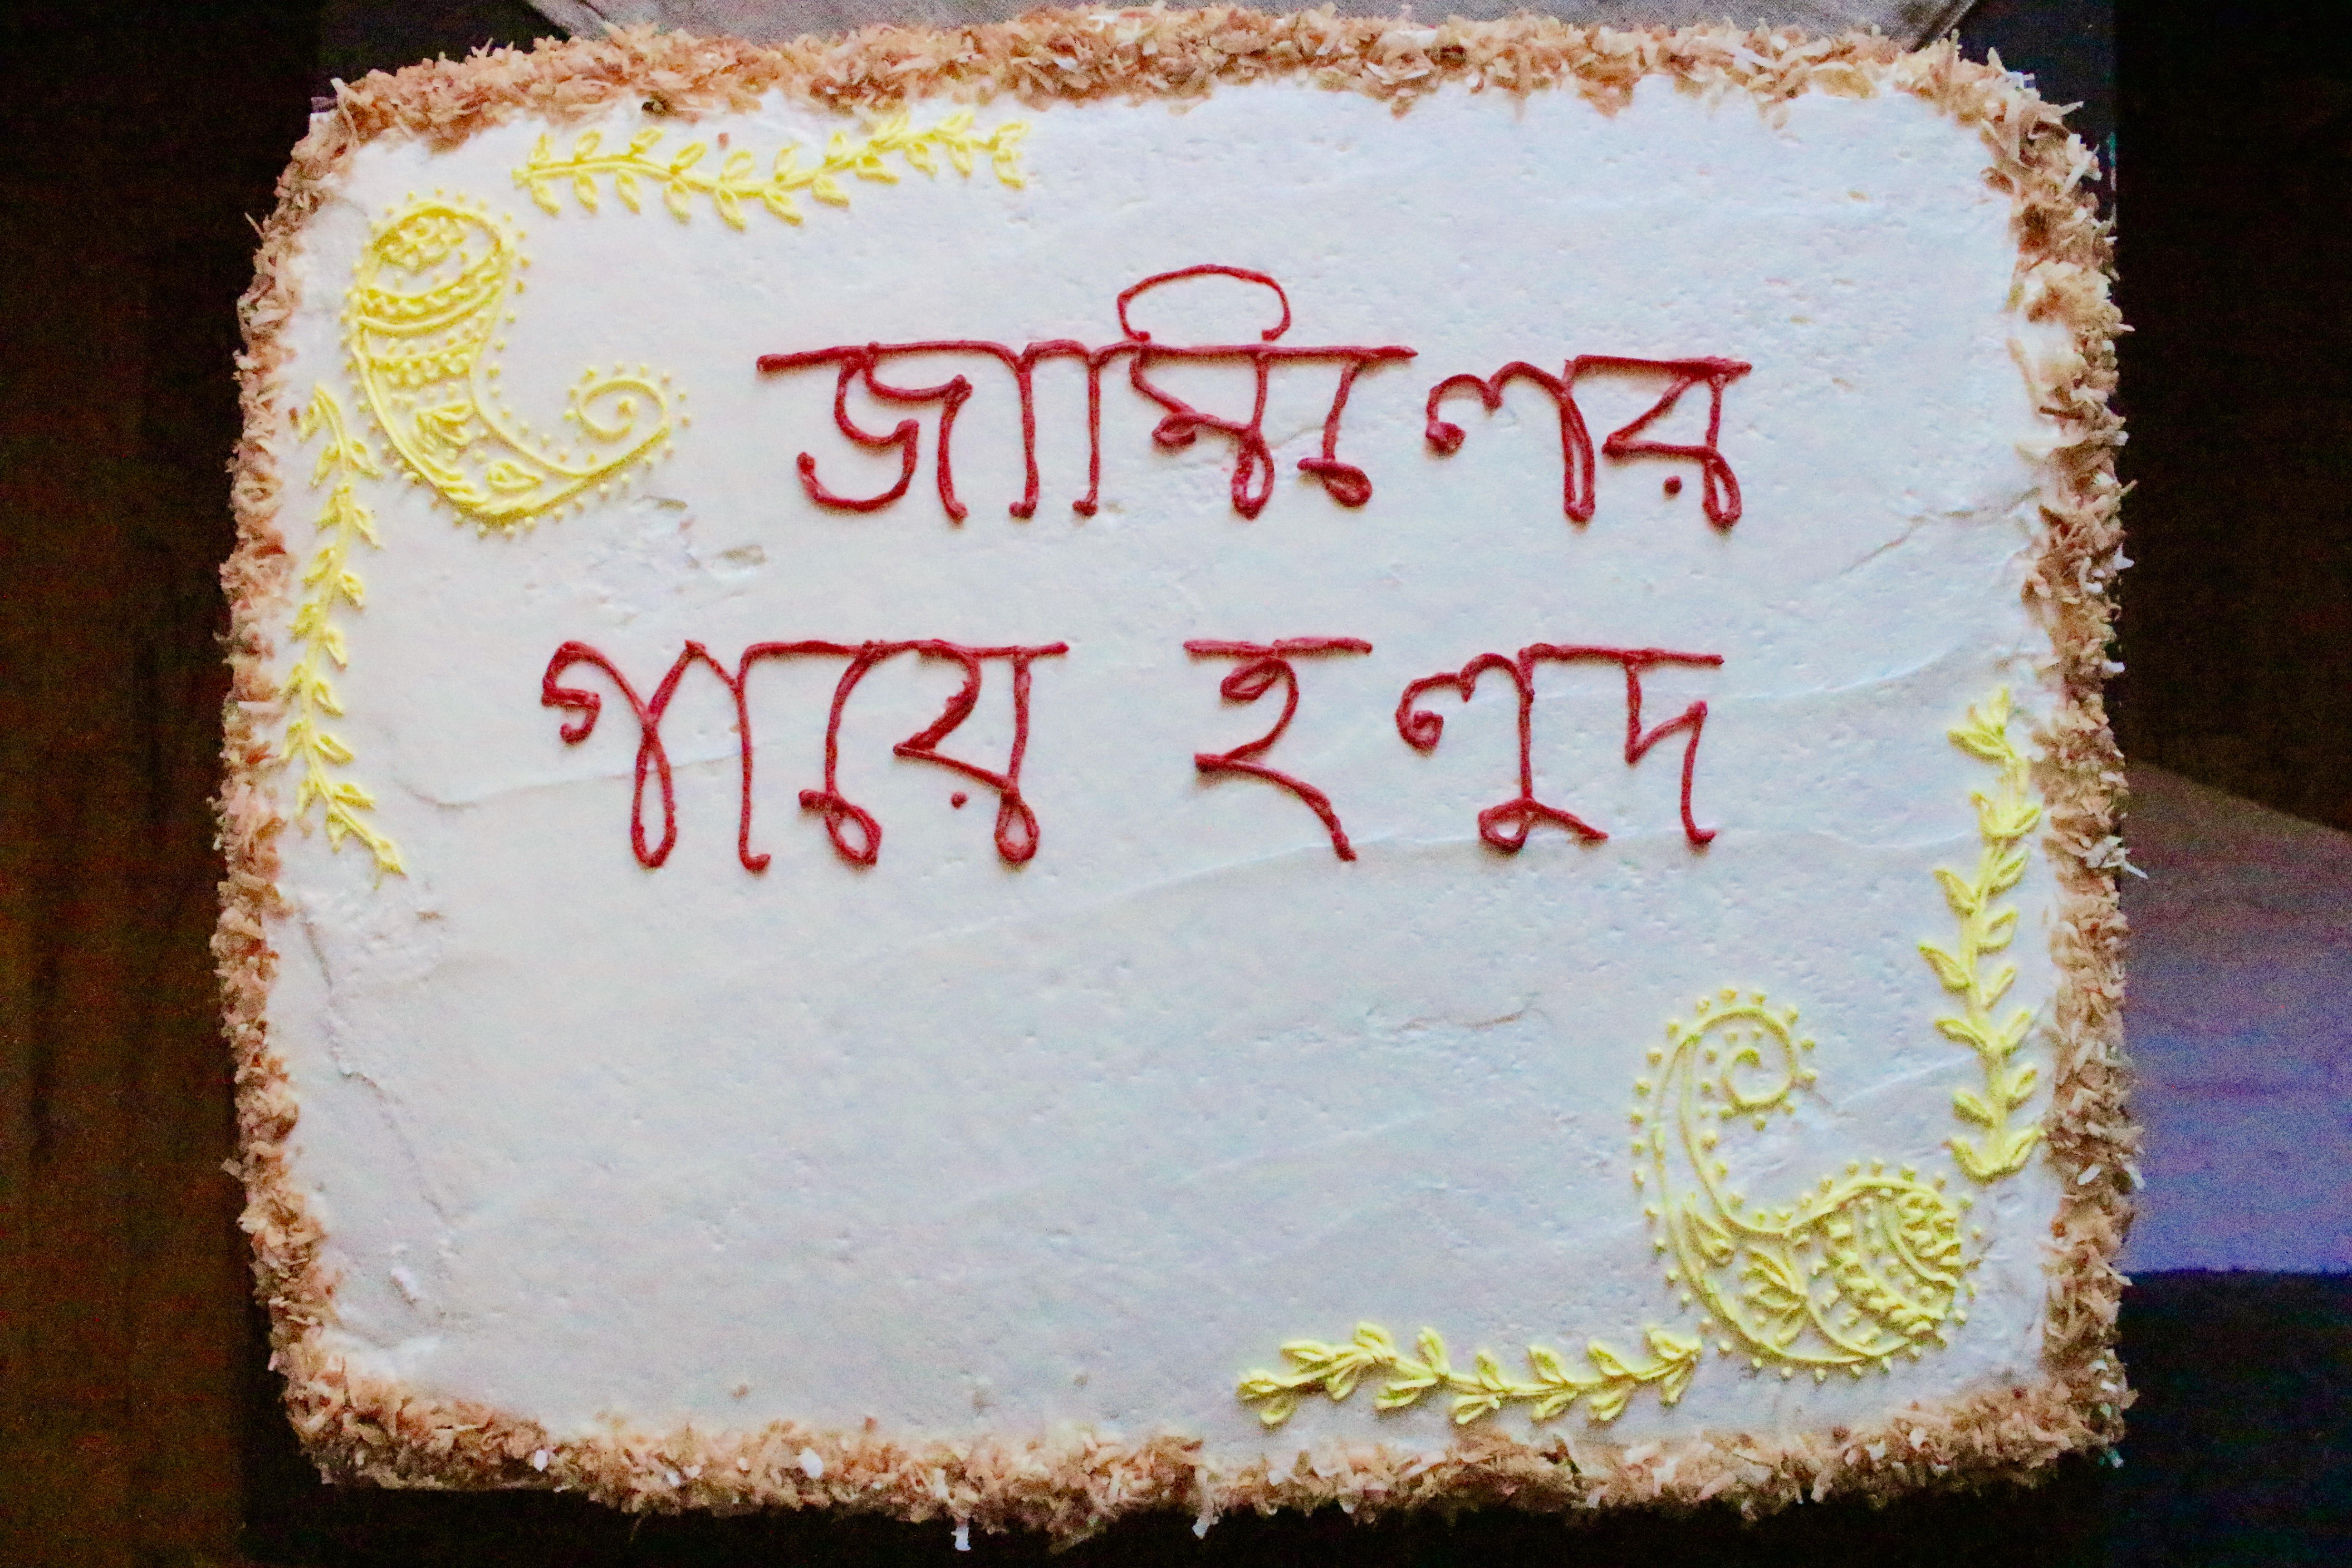 জামিলের
গায়ে হলুদ